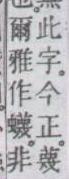 無此字。今正。蔑
也。爾雅作蠛。非